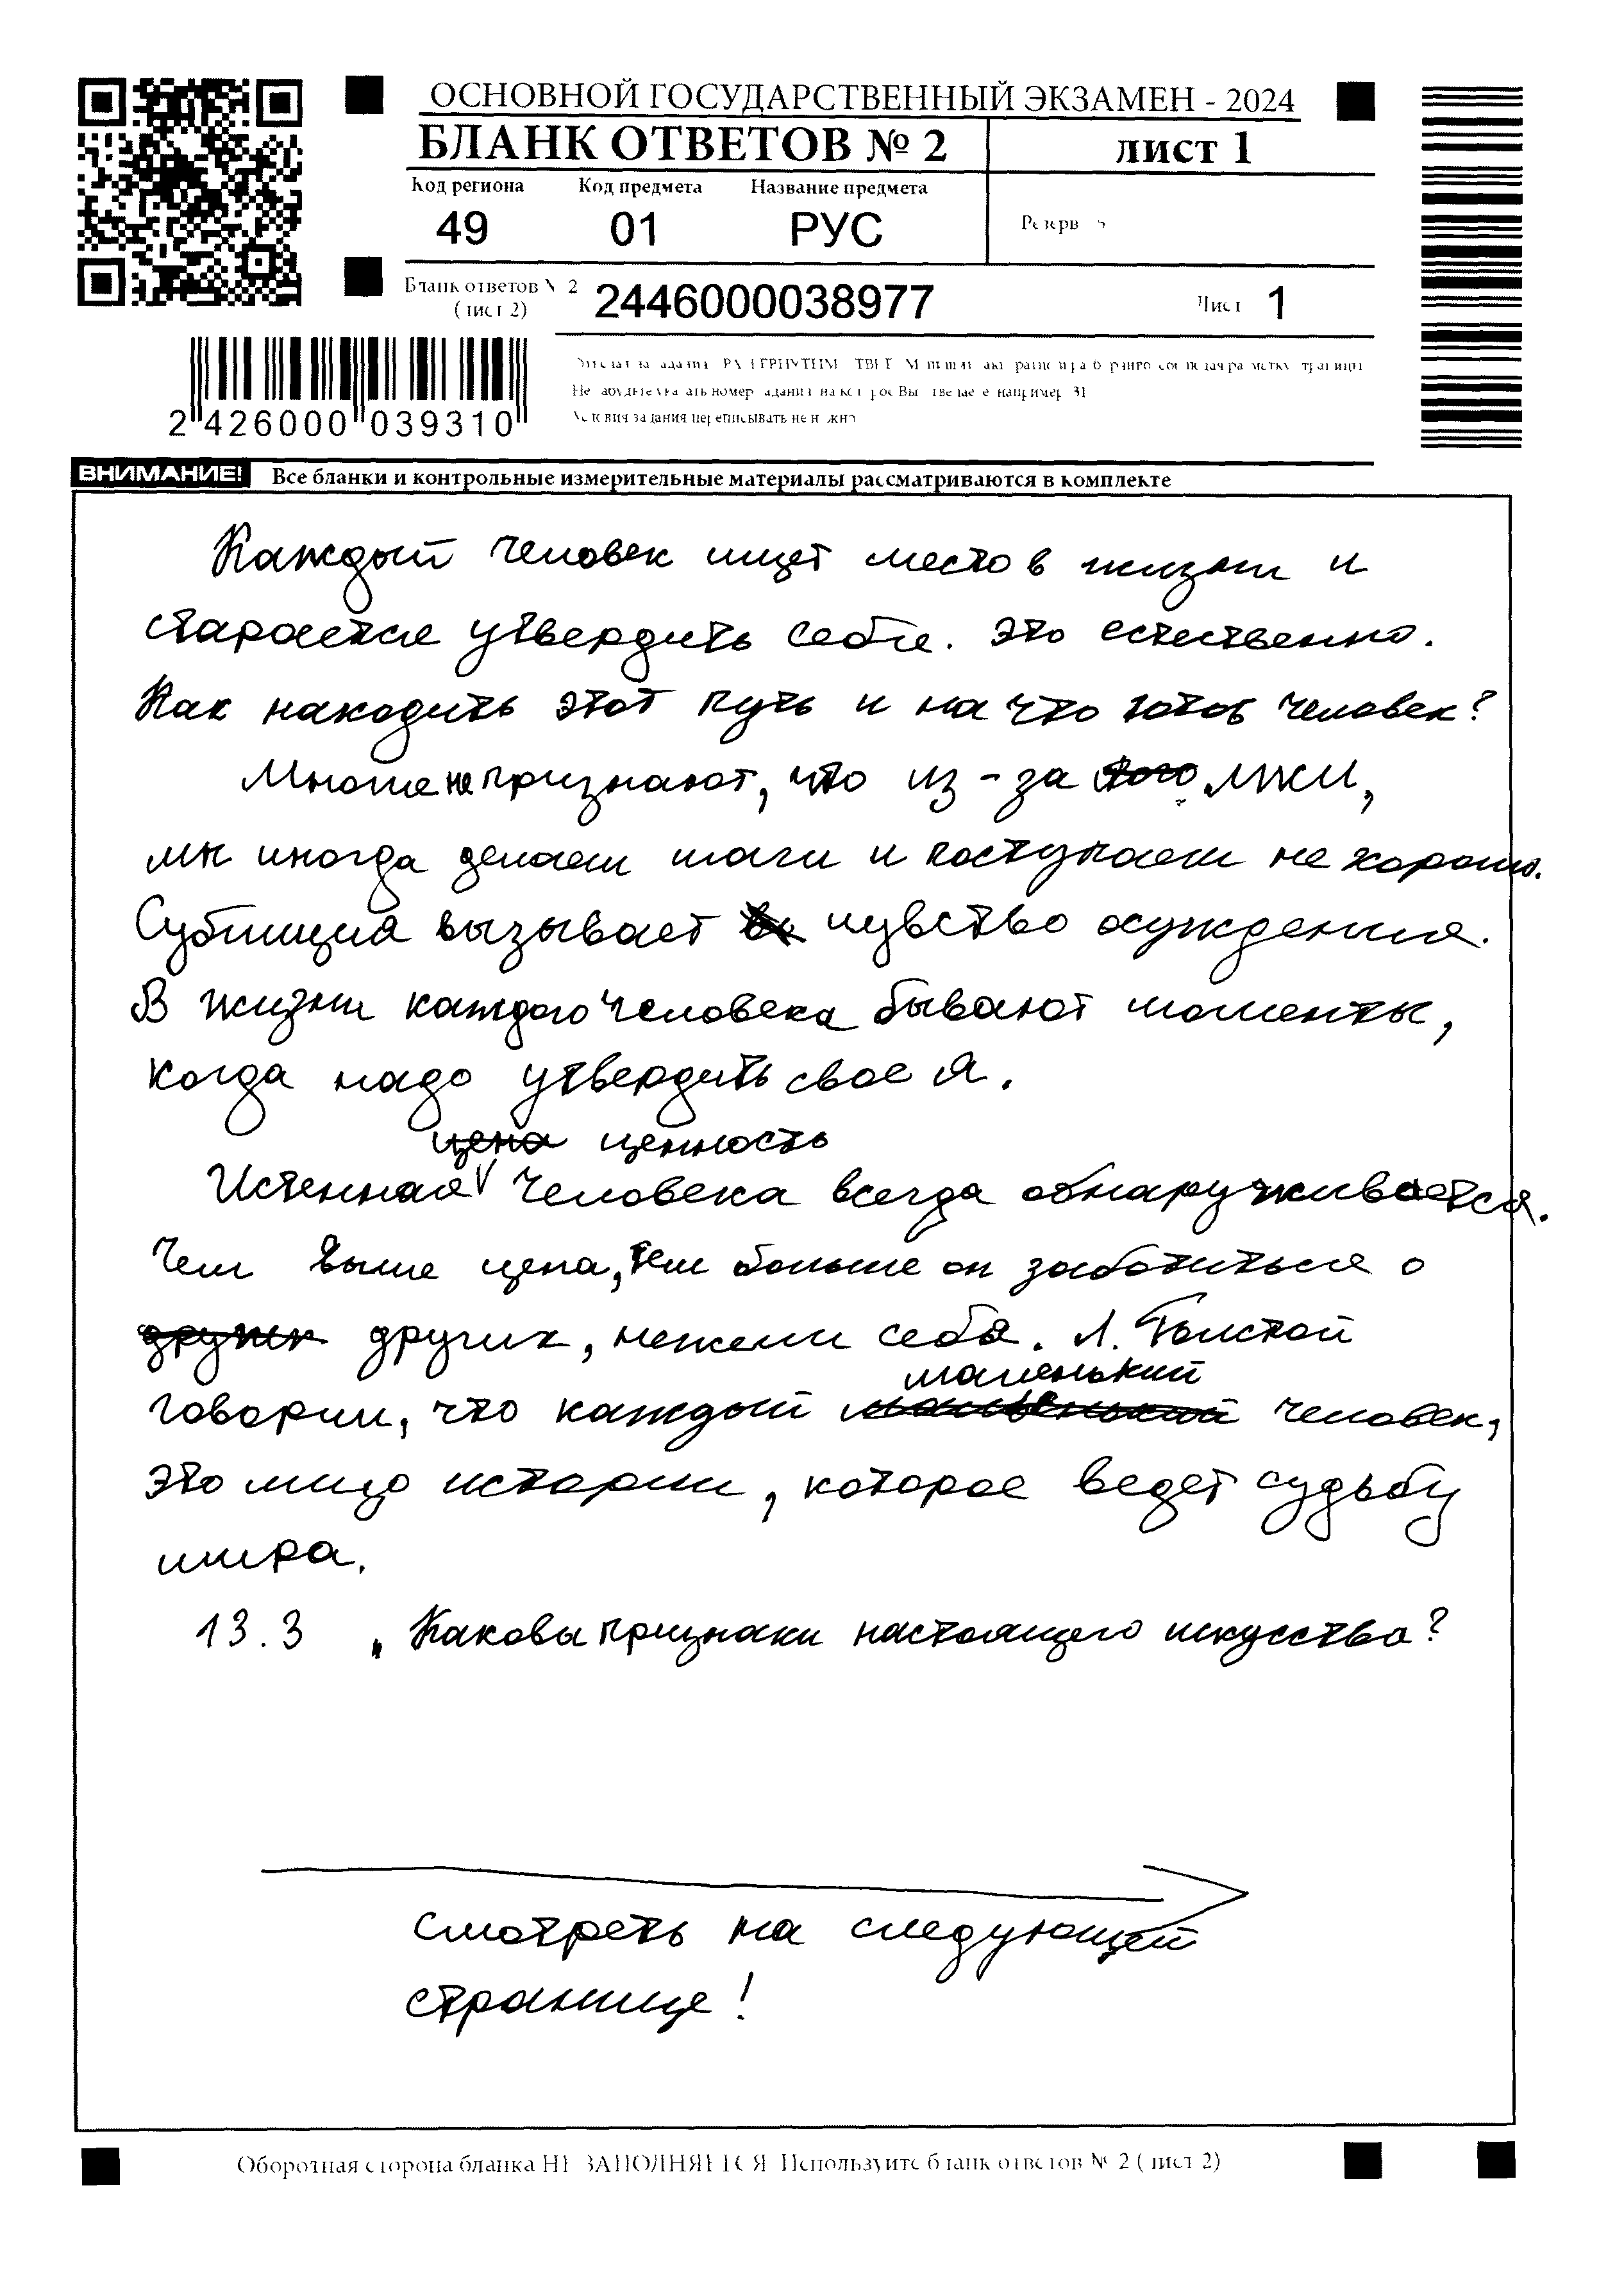 ОСНОВНОЙ ГОСУДАРСТВЕННЫЙ ЭКЗАМЕН - 2024
БЛАНК ОТВЕТОВ № 2
лист 1
Код региона Код предмета Название предмета
49 01 РУС
Резерв
Бланк ответов № 2
(лист 2)
2446000038977
Лист 1
2 426000 039310
Условия задания переписывать не нужно
ВНИМАНИЕ! Все бланки и контрольные измерительные материалы рассматриваются в комплекте
Каждый человек ищет место в жизни и
старается утвердить себя. Это естественно.
Как находить этот путь и на что готов человек?
Многие не признают, что из-за того лжи,
мы иногда делаем шаги и поступаем не хорошо.
вызывает чувство осуждения.
В жизни каждого человека бывают моменты,
когда надо утвердить свое я.
цена ценность
Истенная человека всегда обнаруживается.
Чем выше цена, тем больше он заботиться о
других, нежели себя. Л. Толстой
маленький
говорил, что каждый человек,
это лицо истории, которое ведет судьбу
мира.
13.3 „Каковы признаки настоящего искусства?
смотреть на следующей
странице!
Оборотная сторона бланка НЕ ЗАПОЛНЯЕТСЯ. Используйте бланк ответов № 2 (лист 2)